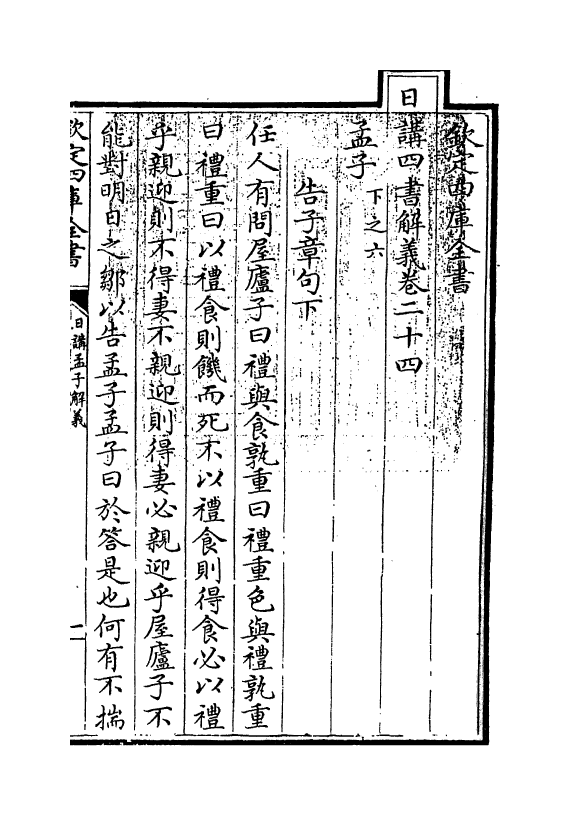 欽定四庫全書
日講四書解義卷二十四
孟子 下之六
告子章句下
任人有問屋廬子曰禮與食孰重曰禮重色與禮孰重
曰禮重曰以禮食則饑而死不以禮食則得食必以禮
乎親迎則不得妻不親迎則得妻必親迎乎屋廬子不
能對明日之鄒以告孟子孟子曰於答是也何有不揣
欽定四庫全書
日講孟子解義
一